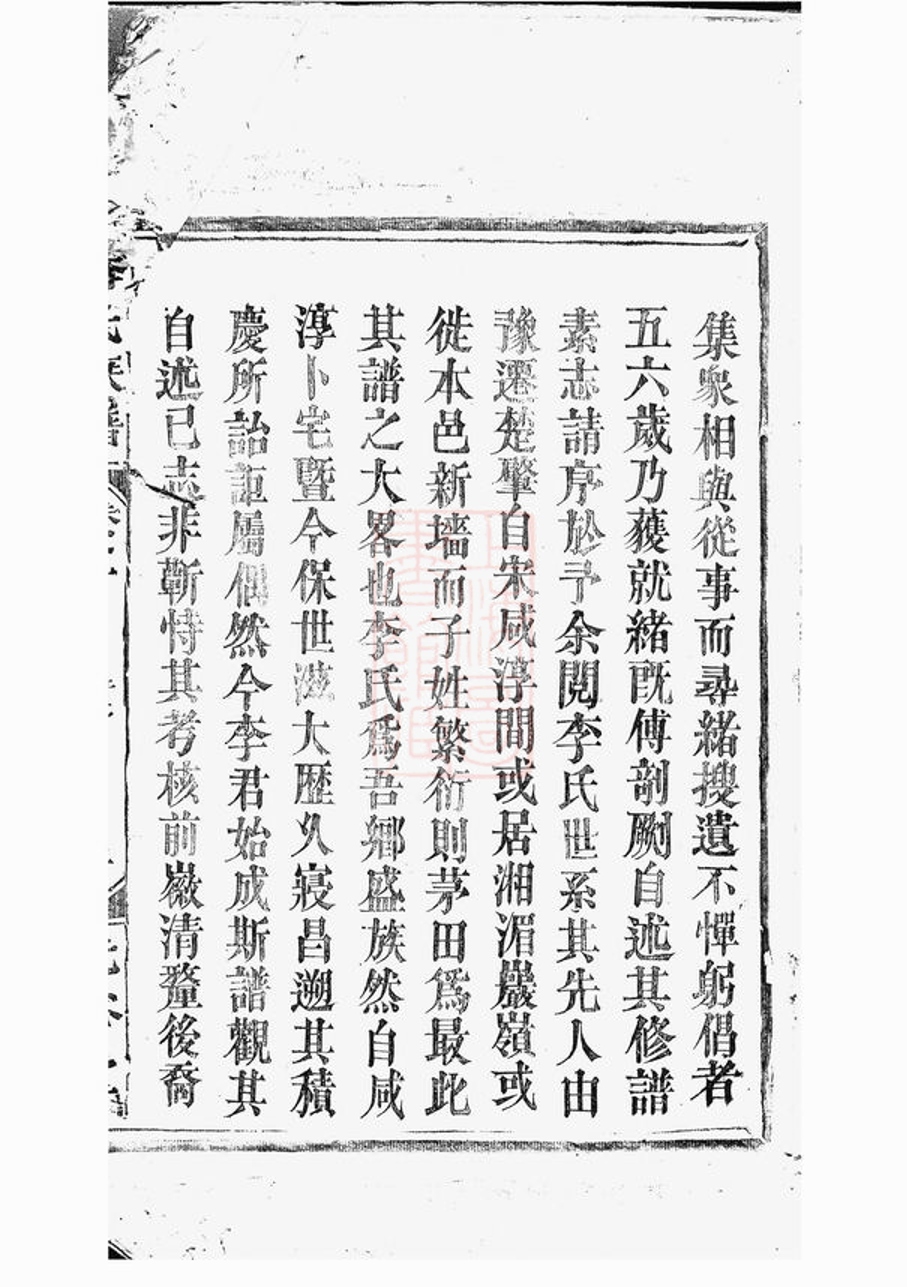 集象相與從事而尋緒搜遺不憚躬倡者
五六歲乃蔆就緒旣傅剞劂自述其修譜
素志請序於予余閱李氏世系其先人由
豫遷楚肇自宋咸淳間或居湘湄巖嶺或
徙本邑新墻而子姓繁衍則茅田爲最此
其譜之大畧也李氏爲吾鄉盛族然自咸
淳卜宅暨今保世滋大歷久寢昌遡其積
慶所詒詎屬偶然今李君始成斯譜觀其
自述已志非靳恃其考核前嶶清釐後裔
氏族譜